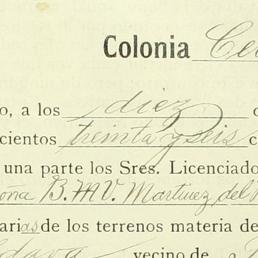 Colonia
o, a los diez
cientos treinta y seis c
una parte los Sres. Licenciado
oña B. M. V. Martinez del
arias de los terrenos materia de
vecino de